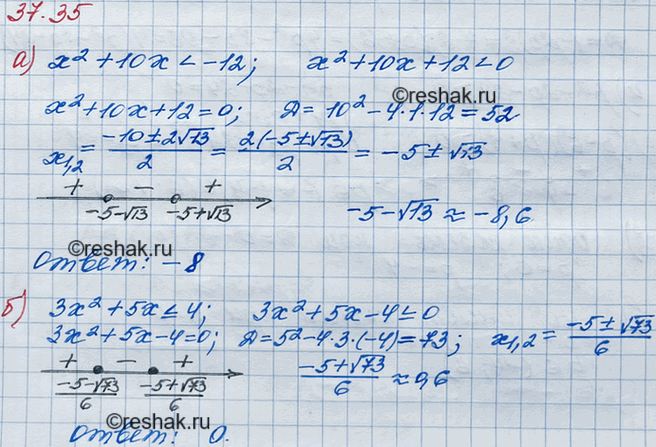 37.35
а) x² + 10x < -12; x² + 10x + 12 < 0
x² + 10x + 12 = 0; Д = 10² - 4·1·12 = 52
©reshak.ru
x₁,₂ = (-10 ± 2√13)/2 = 2(-5 ± √13)/2 = -5 ± √13
+ - +
-5-√13 -5+√13 -5-√13 ≈ -8,6
©reshak.ru
Ответ: -8
б) 3x² + 5x ≤ 4; 3x² + 5x - 4 ≤ 0
3x² + 5x - 4 = 0; Д = 5² - 4·3·(-4) = 73; x₁,₂ = (-5 ± √73)/6
+ - +
(-5-√73)/6 (-5+√73)/6 (-5+√73)/6 ≈ 0,6
©reshak.ru
Ответ: 0.